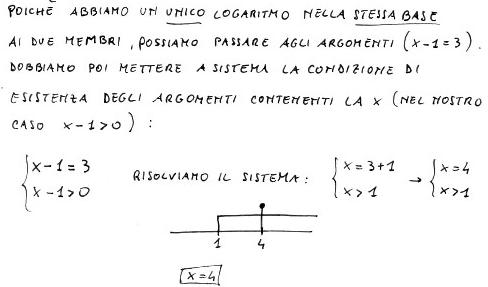 POICHÉ ABBIAMO UN UNICO LOGARITMO NELLA STESSA BASE
AI DUE MEMBRI, POSSIAMO PASSARE AGLI ARGOMENTI (x-1=3).
DOBBIAMO POI METTERE A SISTEMA LA CONDIZIONE DI
ESISTENZA DEGLI ARGOMENTI CONTENENTI LA X (NEL NOSTRO
CASO x-1>0):
{x-1=3 {x=3+1 {x=4
{x-1>0 RISOLVIAMO IL SISTEMA: {x>1 → {x>1
1 4
x=4